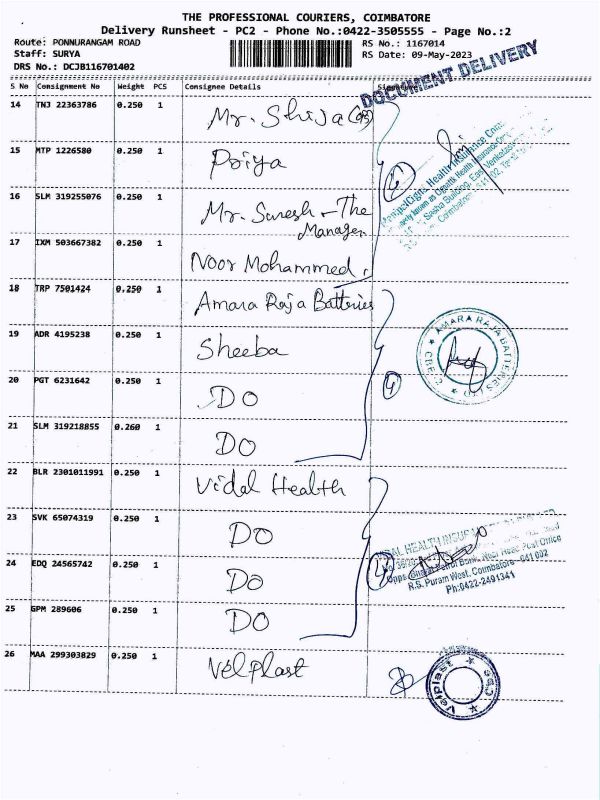 THE PROFESSIONAL COURIERS, COIMBATORE
Delivery Runsheet - PC2 - Phone No.:0422-3505555 - Page No.:2
Route: PONNURANGAM ROAD
RS No.: 1167014
Staff: SURYA
RS Date: 09-May-2023
DRS No.: DCJB116701402
DOCUMENT DELIVERY
S No Consignment No Weight PCS Consignee Details
14 TNJ 22363786 0.250 1 Mr. Shija
15 MTP 1226580 0.250 1 Priya
16 SLM 319255076 0.250 1 Mr. Suresh - The
Manager
17 IXM 503667382 0.250 1 Noor Mohammed
18 TRP 7501424 0.250 1 Amara Raja Batteries
19 ADR 4195238 0.250 1 Sheeba
AMARA RAJA BATTERIES
20 PGT 6231642 0.250 1 DO
4
21 SLM 319218855 0.260 1 DO
22 BLR 2301011991 0.250 1 Vidal Health
23 SVK 65074319 0.250 1 DO
HEALTH INSU
Head Post Office
R.S. Puram West, Coimbatore - 641 002
Ph:0422-2491341
24 EDQ 24565742 0.250 1 DO
4
25 GPM 289606 0.250 1 DO
26 MAA 299303829 0.250 1 Velplast
Velplast